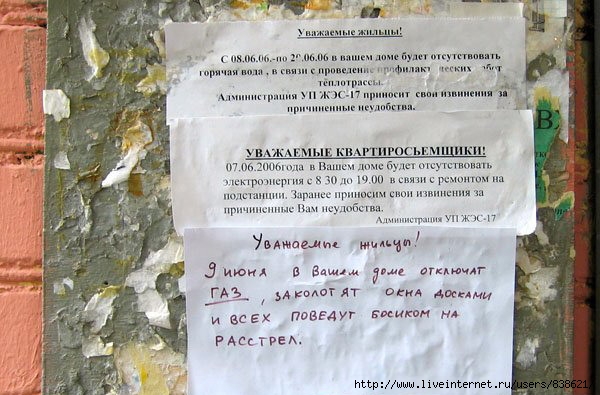 Уважаемые жильцы!
С 08.06.06.-по 20.06.06 в вашем доме будет отсутствовать
горячая вода , в связи с проведение профилактических работ
теплотрассы.
Администрация УП ЖЭС-17 приносит свои извинения за
причиненные неудобства.
УВАЖАЕМЫЕ КВАРТИРОСЬЕМЩИКИ!
07.06.2006года в Вашем доме будет отсутствовать
электроэнергия с 8 30 до 19.00 в связи с ремонтом на
подстанции. Заранее приносим свои извинения за
причиненные Вам неудобства.
Администрация УП ЖЭС-17
Уважаемые жильцы!
9 июня в Вашем доме отключат
ГАЗ , заколотят окна досками
и всех поведут босиком на
расстрел.
В
http://www.liveinternet.ru/users/838621